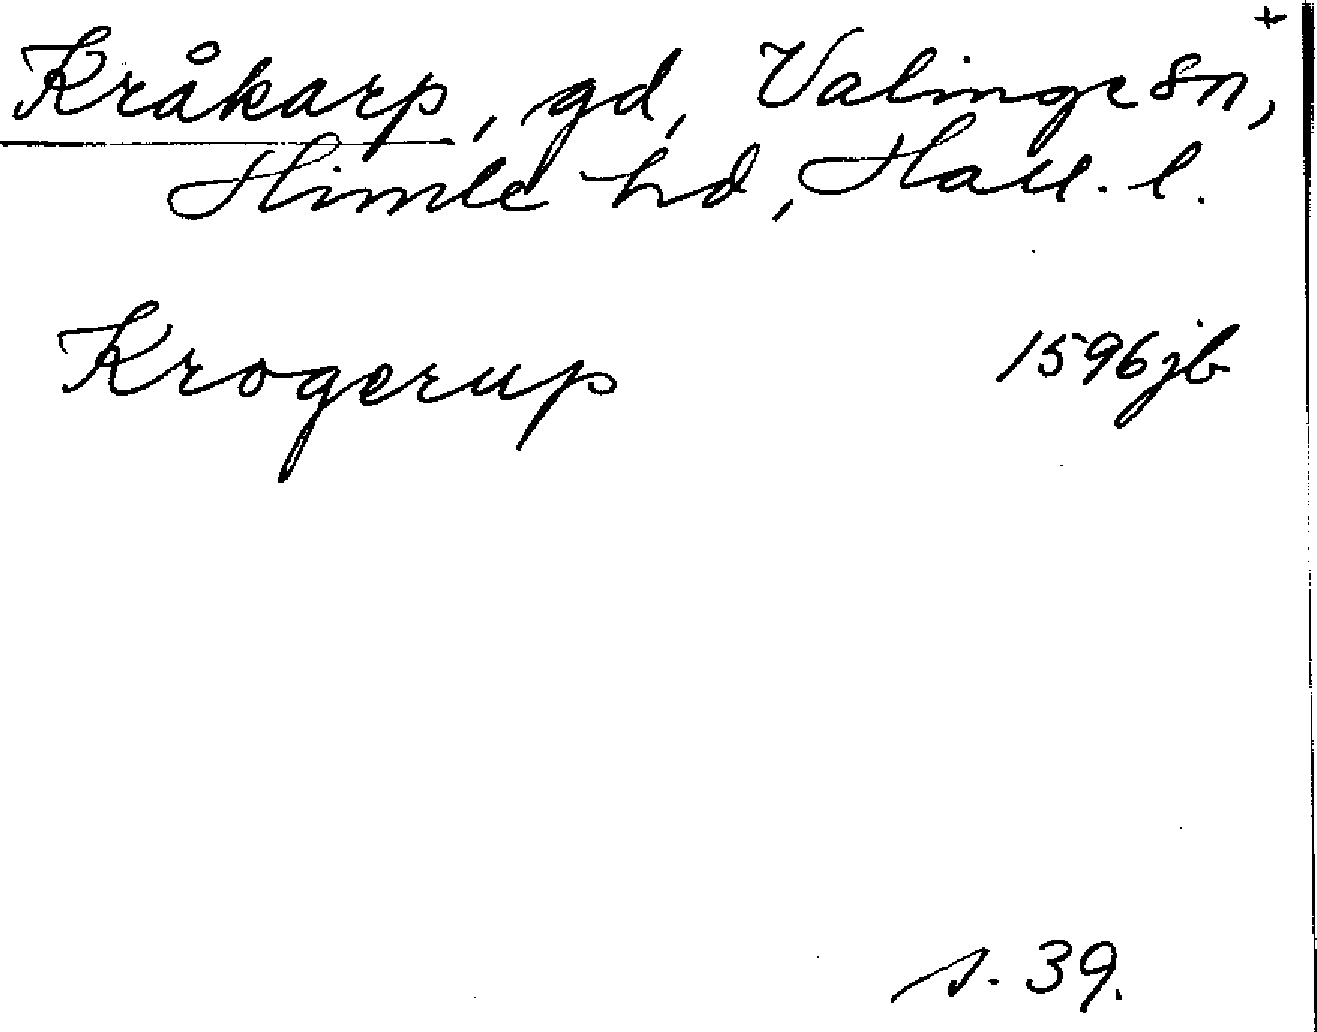 +
Kråkarp, gd, Valinge sn,
Himle hd, Hall. l.
Krogerup 1596 jb
s. 39.